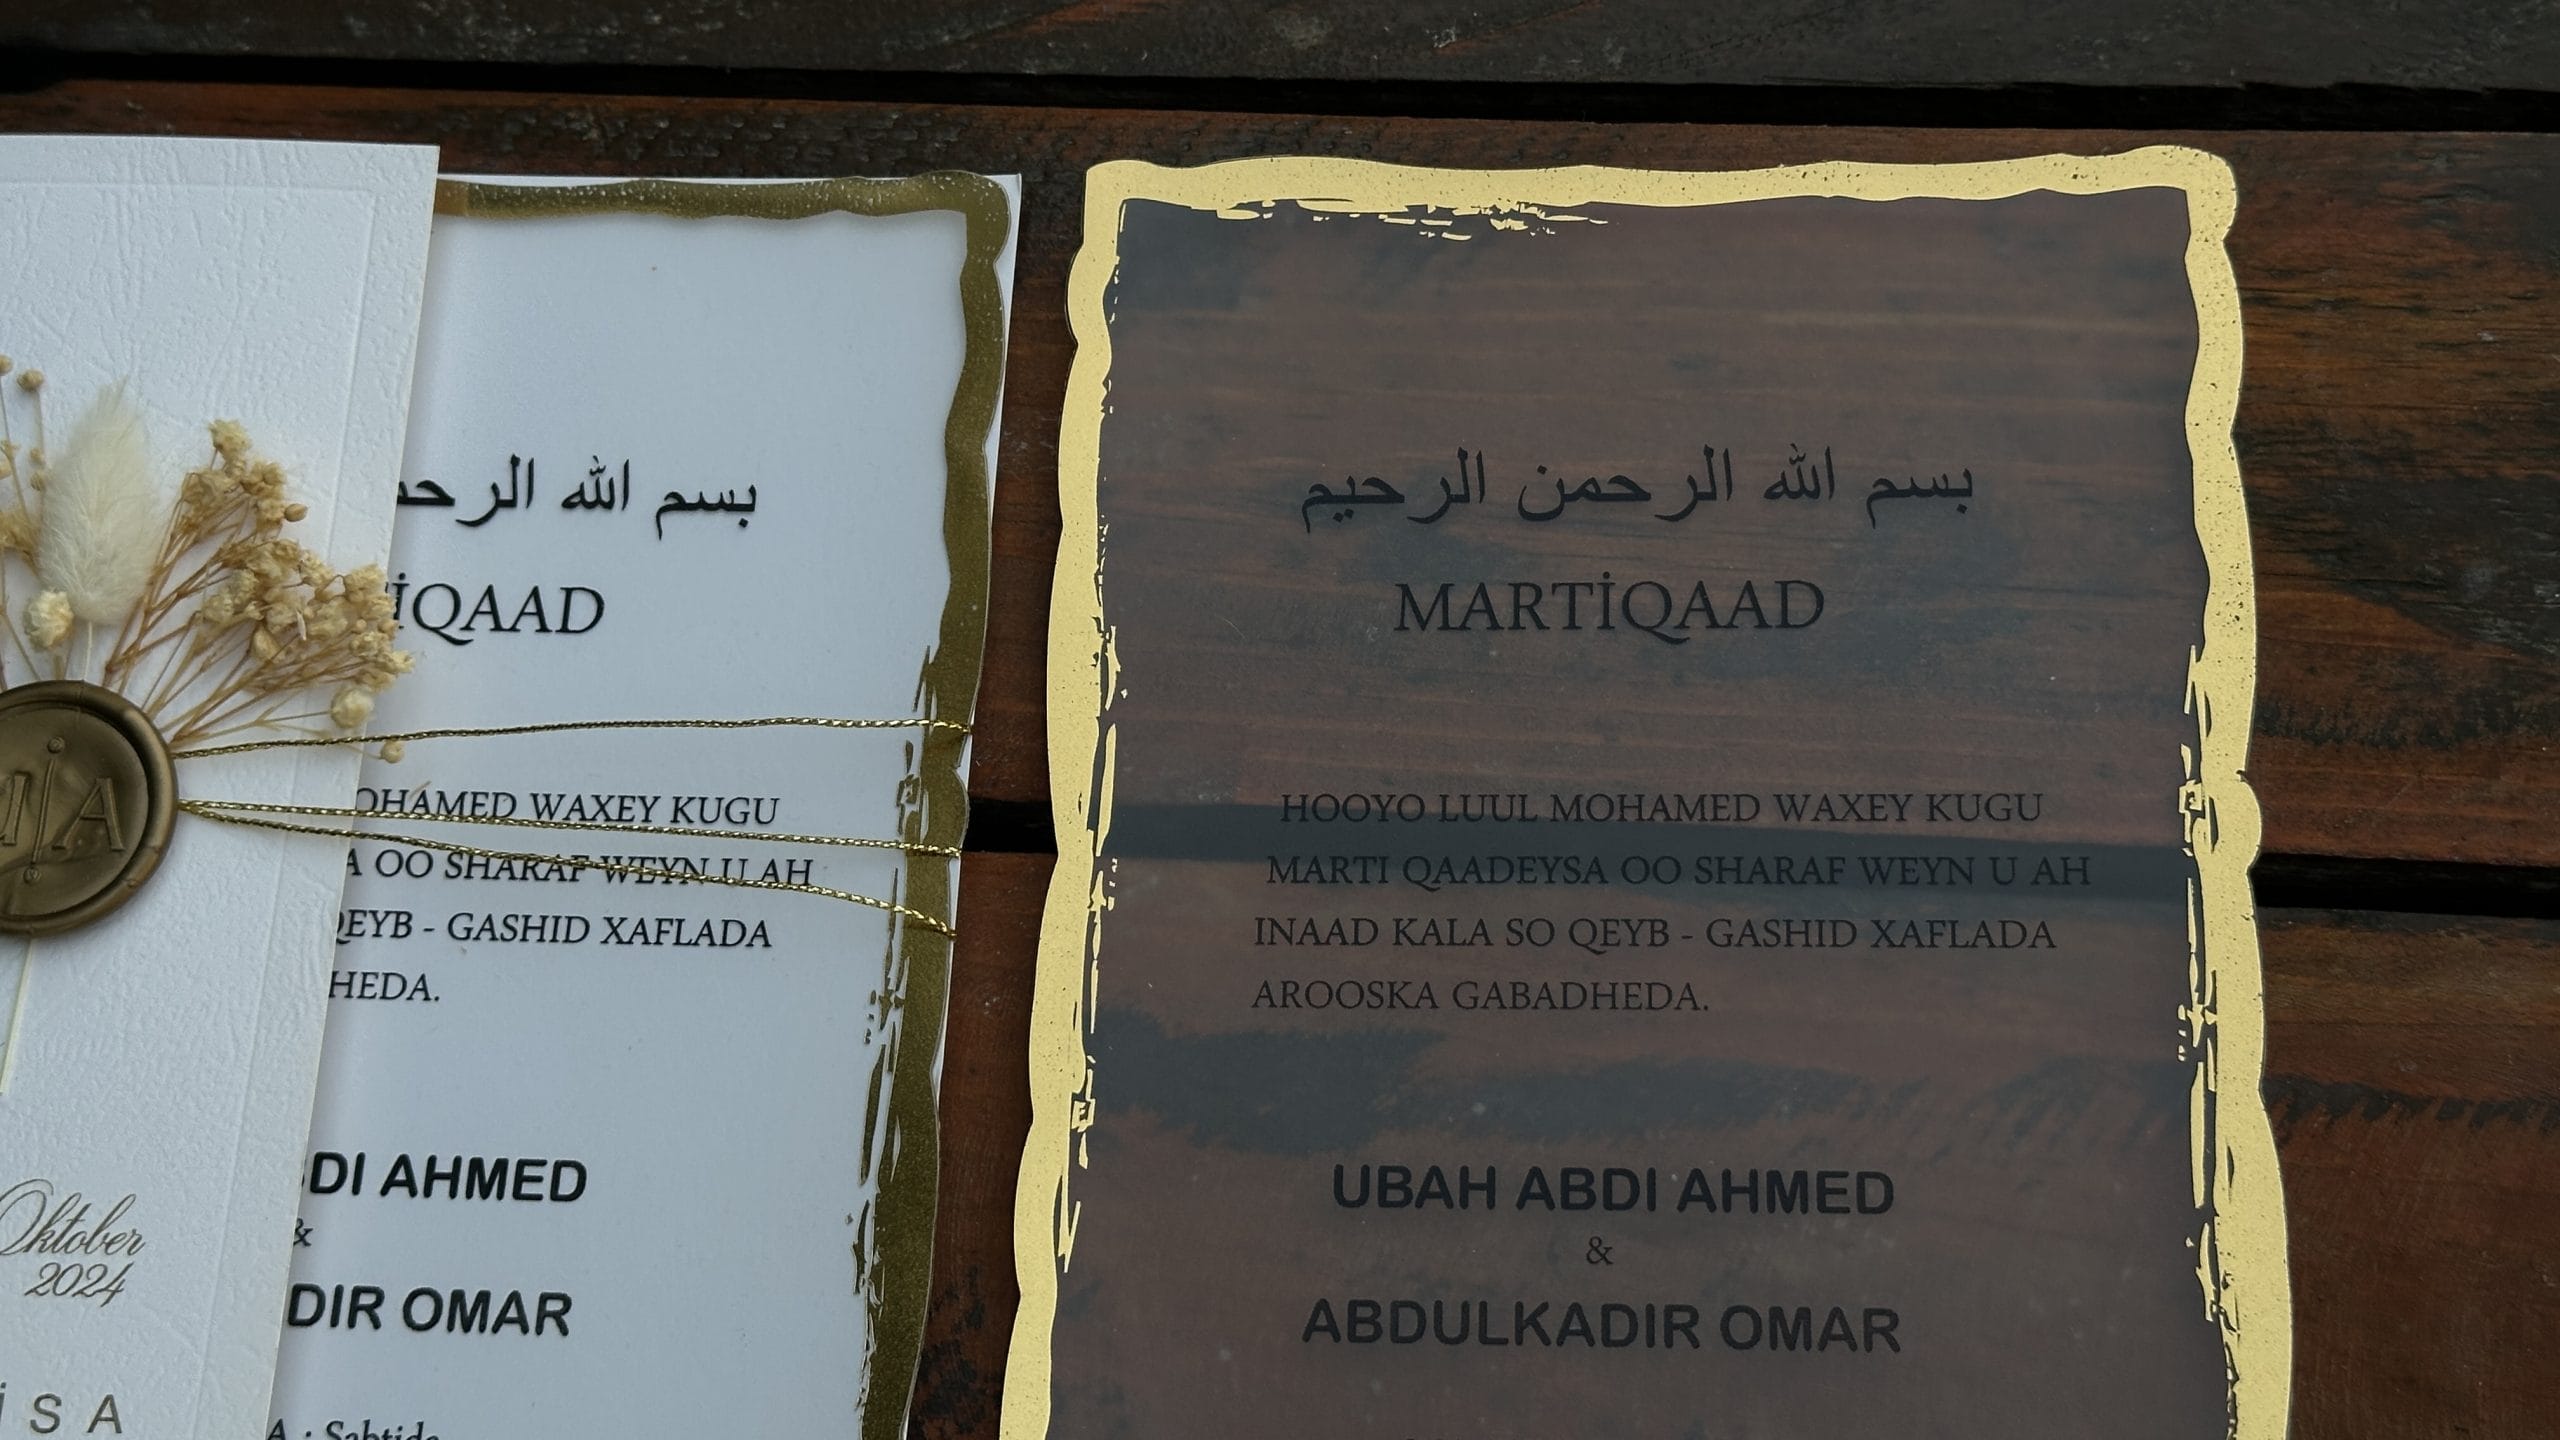 بسم الله الرحم
İQAAD
OHAMED WAXEY KUGU
A OO SHARAF WEYN U AH
QEYB - GASHID XAFLADA
HEDA.
DI AHMED
&
DIR OMAR
A : Sabtida
A
Oktober
2024
İSA
بسم الله الرحمن الرحيم
MARTİQAAD
HOOYO LUUL MOHAMED WAXEY KUGU
MARTI QAADEYSA OO SHARAF WEYN U AH
INAAD KALA SO QEYB - GASHID XAFLADA
AROOSKA GABADHEDA.
UBAH ABDI AHMED
&
ABDULKADIR OMAR